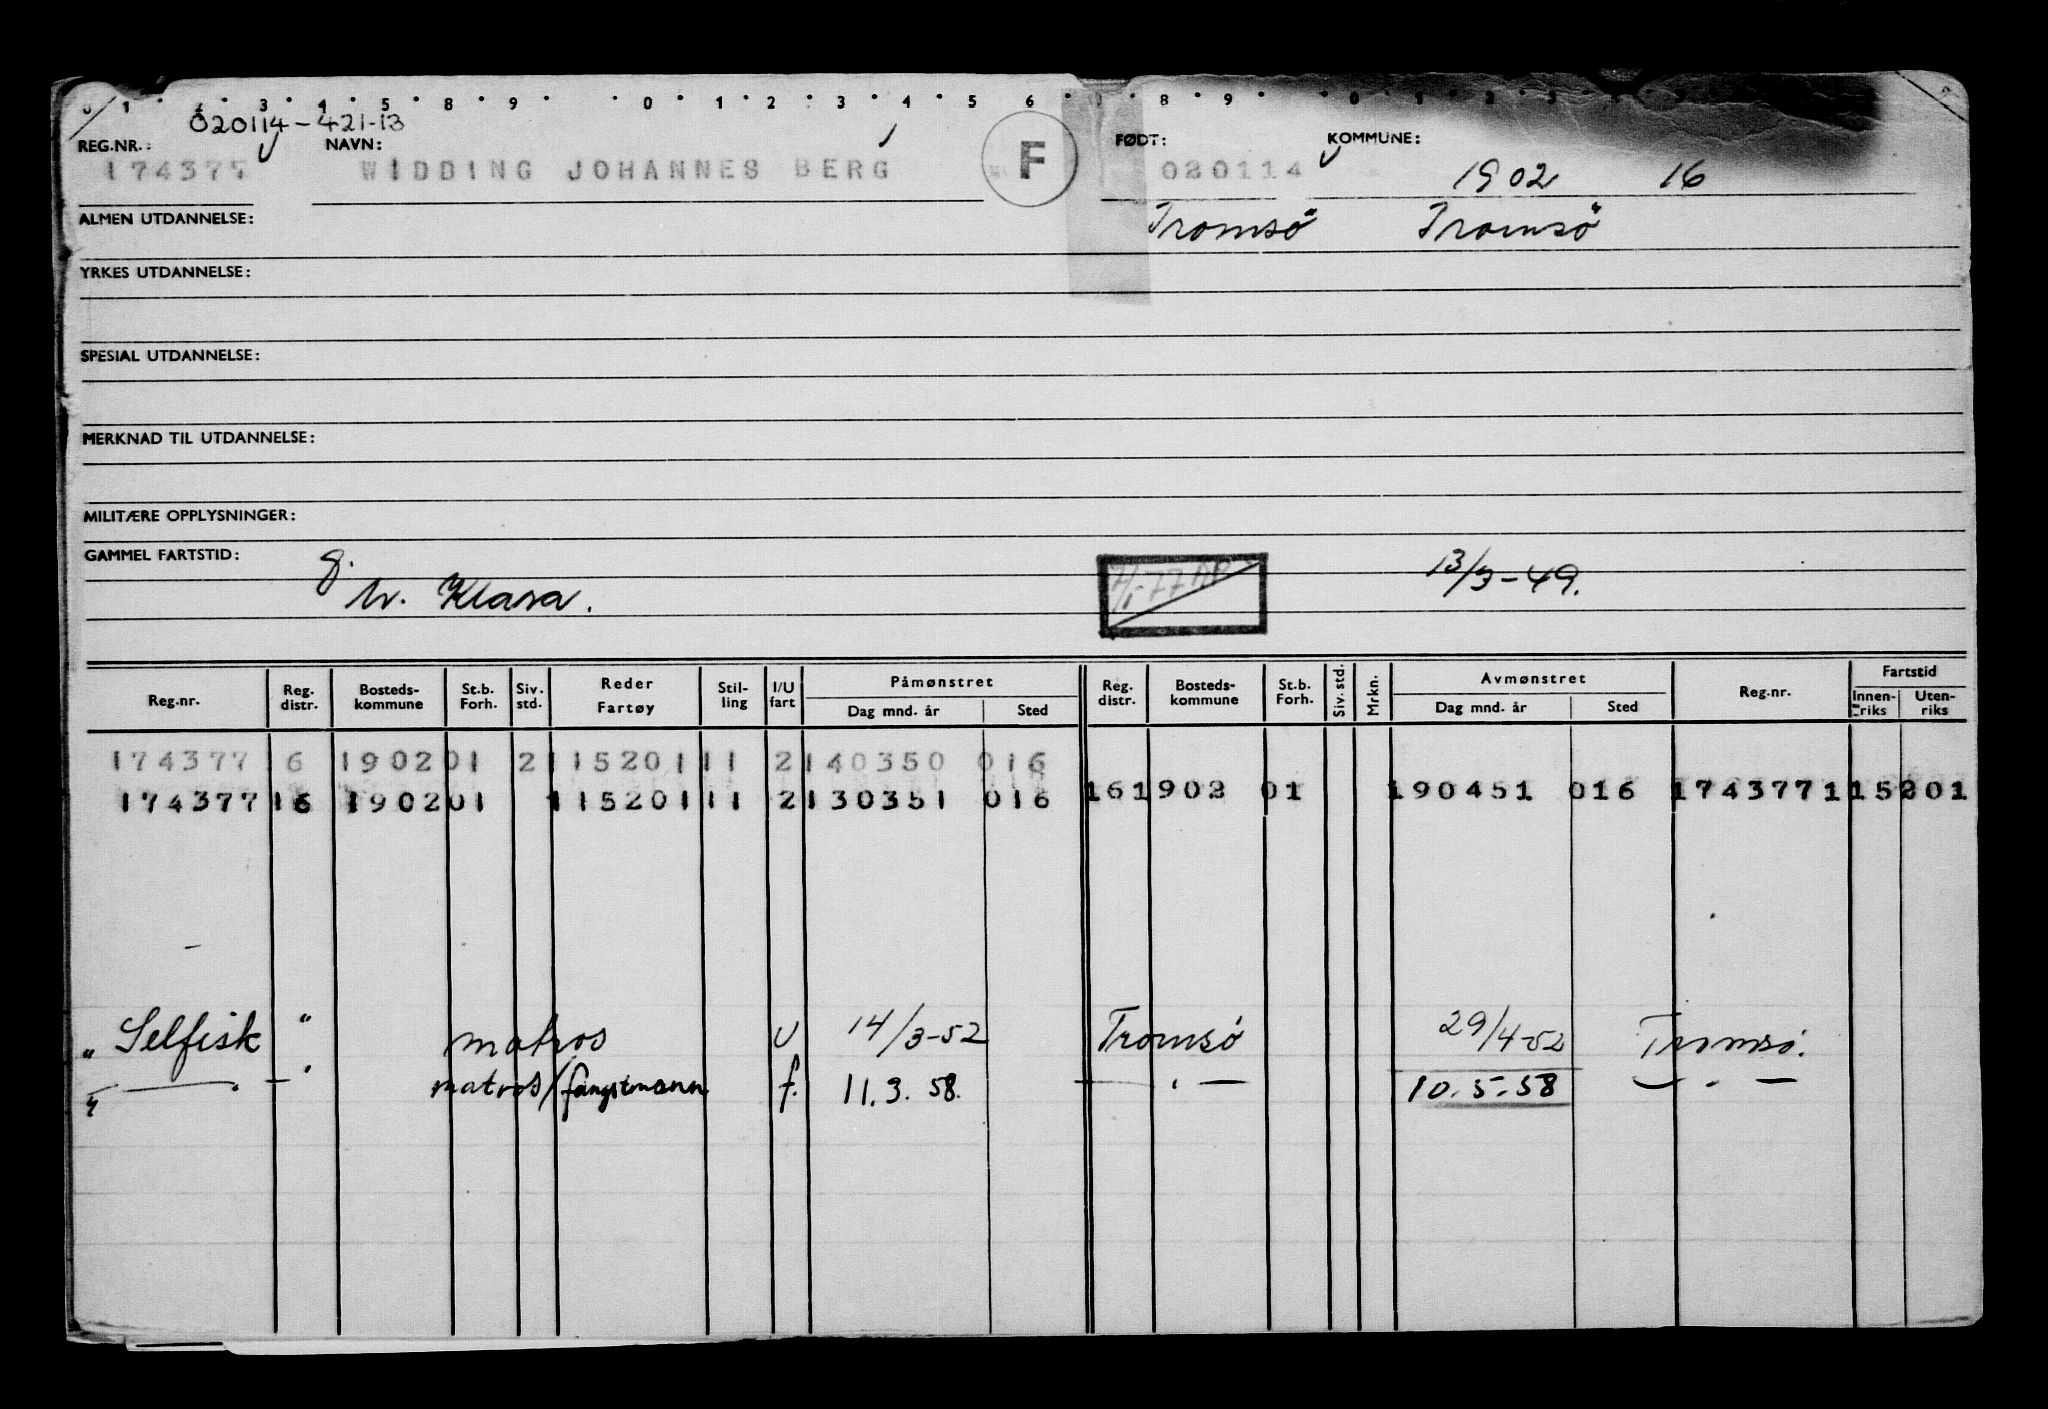 020114-421-13
REG.NR.: NAVN: FØDT: KOMMUNE:
174377 WIDDING JOHANNES BERG F 020114 1902 16
ALMEN UTDANNELSE: Tromsö Tromsö
YRKES UTDANNELSE:
SPESIAL UTDANNELSE:
MERKNAD TIL UTDANNELSE:
MILITÆRE OPPLYSNINGER:
GAMMEL FARTSTID: g. 13/3-49.
Klara.
Reg.nr. Reg. distr. Bosteds-kommune St.b. Forh. Siv. std. Reder Fartøy Stil-ling I/U fart Påmønstret Dag mnd. år Sted Reg. distr. Bosteds-kommune St.b. Forh. Siv. std. Mrkn. Avmønstret Dag mnd. år Sted Reg.nr. Fartstid Innen-riks Uten-riks
174377 16 1902 01 2 115201 11 2 140350 016
174377 16 1902 01 115201 11 2 130351 016 16 1902 01 190451 016 174377 115201
" Selfisk " matros U 14/3-52 Tromsø 29/4-52 Tromsø.
" — . — " matros/fangstmann f. 11.3.58. — . — 10.5.58 — . —